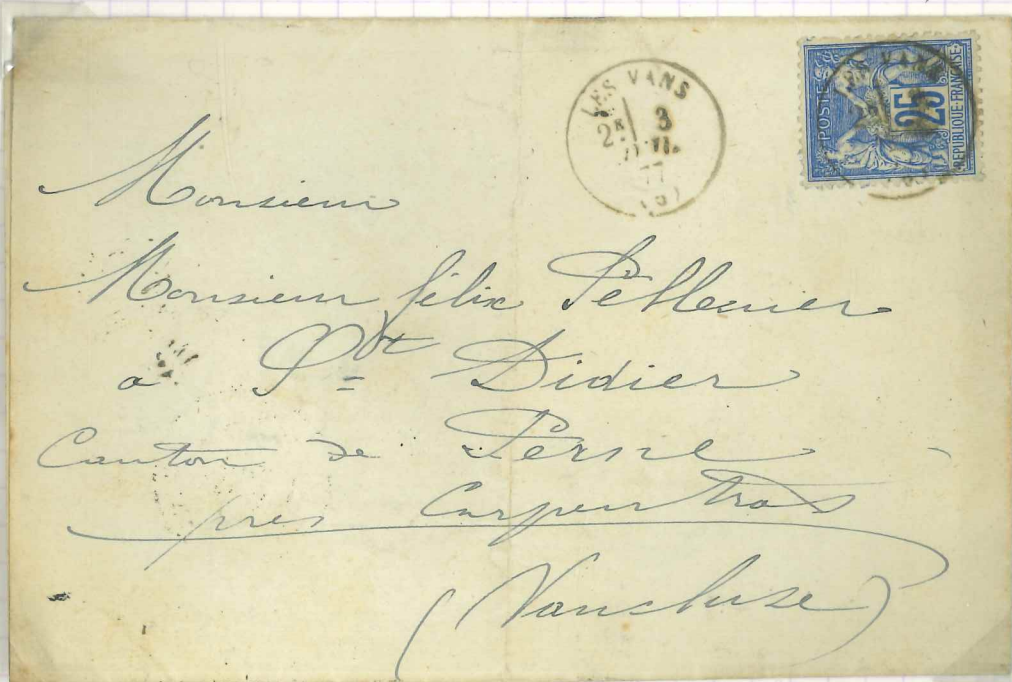 LES VANS
2E 3
77
(6)
POSTES
25
REPUBLIQUE FRANÇAISE
Monsieur
Monsieur félix
a St Didier
Canton de Perne
près Carpentras
(Vaucluse)